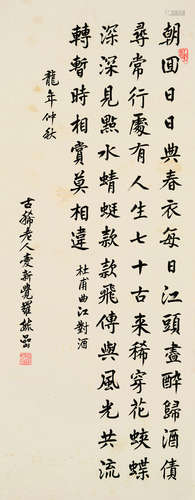 朝回日日典春衣每日江頭盡醉歸酒債
尋常行處有人生七十古來稀穿花蛺蝶
深深見點水蜻蜓款款飛傳與風光共流
轉暫時相賞莫相違
杜甫曲江對酒
龍年仲秋
古稀老人愛新覺羅毓嵒